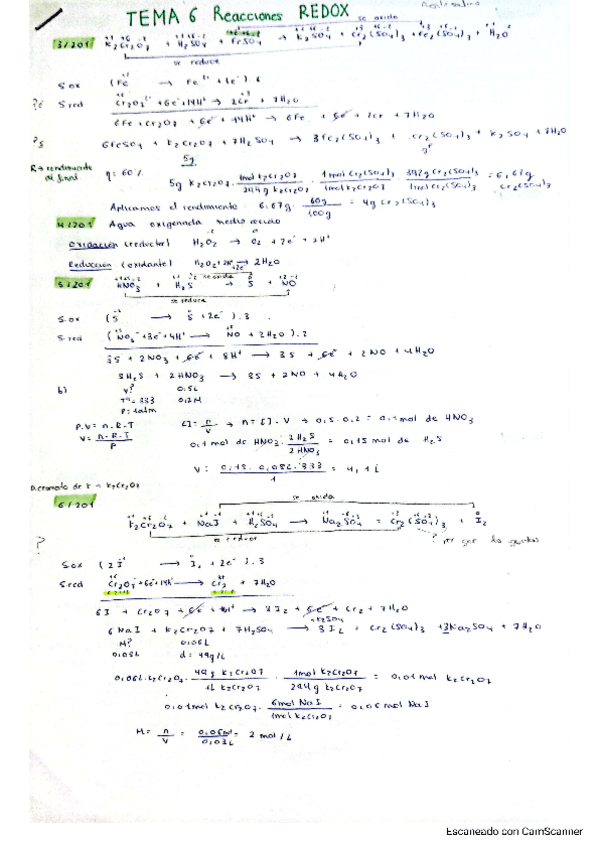 TEMA 6 Reacciones REDOX
3/201 K2Cr2O7 + H2SO4 + FeSO4 → K2SO4 + Cr2(SO4)3 + Fe2(SO4)3 + H2O
se oxida
se reduce
S ox
S red Cr2O7 + 6e- + 14H+ → 2Cr + 7H2O
6Fe + Cr2O7 + 6e- + 14H+ → 6Fe + 6e- + 2Cr + 7H2O
6FeSO4 + K2Cr2O7 + 7H2SO4 → 3Fe2(SO4)3 + Cr2(SO4)3 + K2SO4 + 7H2O
R → rendimiento al final
5g
5g K2Cr2O7 · 1mol K2Cr2O7 / 294g K2Cr2O7 · 1mol Cr2(SO4)3 / 1mol K2Cr2O7 · 392g Cr2(SO4)3 / 1mol Cr2(SO4)3 = 6,67g Cr2(SO4)3
Aplicamos el rendimiento: 6.67g · 60g / 100g = 4g Cr2(SO4)3
4/201 Agua oxigenada medio ácido
Oxidación (reductor) H2O2 → O2 + 2e- + 2H+
Reducción (oxidante) H2O2 + 2H+ + 2e- → 2H2O
5/201 HNO3 + H2S → S + NO
se oxida
se reduce
S ox (S → S + 2e-) . 3
S red (NO3- + 3e- + 4H+ → NO + 2H2O) . 2
3S + 2NO3 + 6e- + 8H+ → 3S + 6e- + 2NO + 4H2O
3H2S + 2HNO3 → 3S + 2NO + 4H2O
b) V? 0.5L
Tª = 333 0.2M
P = 1atm
P.V = n.R.T
V = n.R.T / P
[] = n / V → n = [] . V → 0,5 . 0.2 = 0,1 mol de HNO3
0,1 mol de HNO3 · 3H2S / 2HNO3 = 0,15 mol de H2S
V = 0,15 . 0,082 . 333 / 1 = 4,1 L
Dicromato de K = K2Cr2O7
6/201
se oxida
K2Cr2O7 + NaI + H2SO4 → Na2SO4 = Cr2(SO4)3 + I2
se reduce
?
S ox (2I → I2 + 2e-) . 3
S red Cr2O7 + 6e- + 14H+ → Cr2 + 7H2O
6I + Cr2O7 + 6e- + 14H+ → 3I2 + 6e- + Cr2 + 7H2O
+ K2SO4
6NaI + K2Cr2O7 + 7H2SO4 → 3I2 + Cr2(SO4)3 + 3Na2SO4 + 7H2O
M? 0.06L
0.03L d = 49g/L
0.06L K2Cr2O7 · 49g K2Cr2O7 / 1L K2Cr2O7 · 1mol K2Cr2O7 / 294g K2Cr2O7 = 0,01 mol K2Cr2O7
0,01mol K2Cr2O7 · 6mol NaI / 1mol K2Cr2O7 = 0,06 mol NaI
M = n / V = 0,06 / 0,03L = 2 mol/L
Escaneado con CamScanner